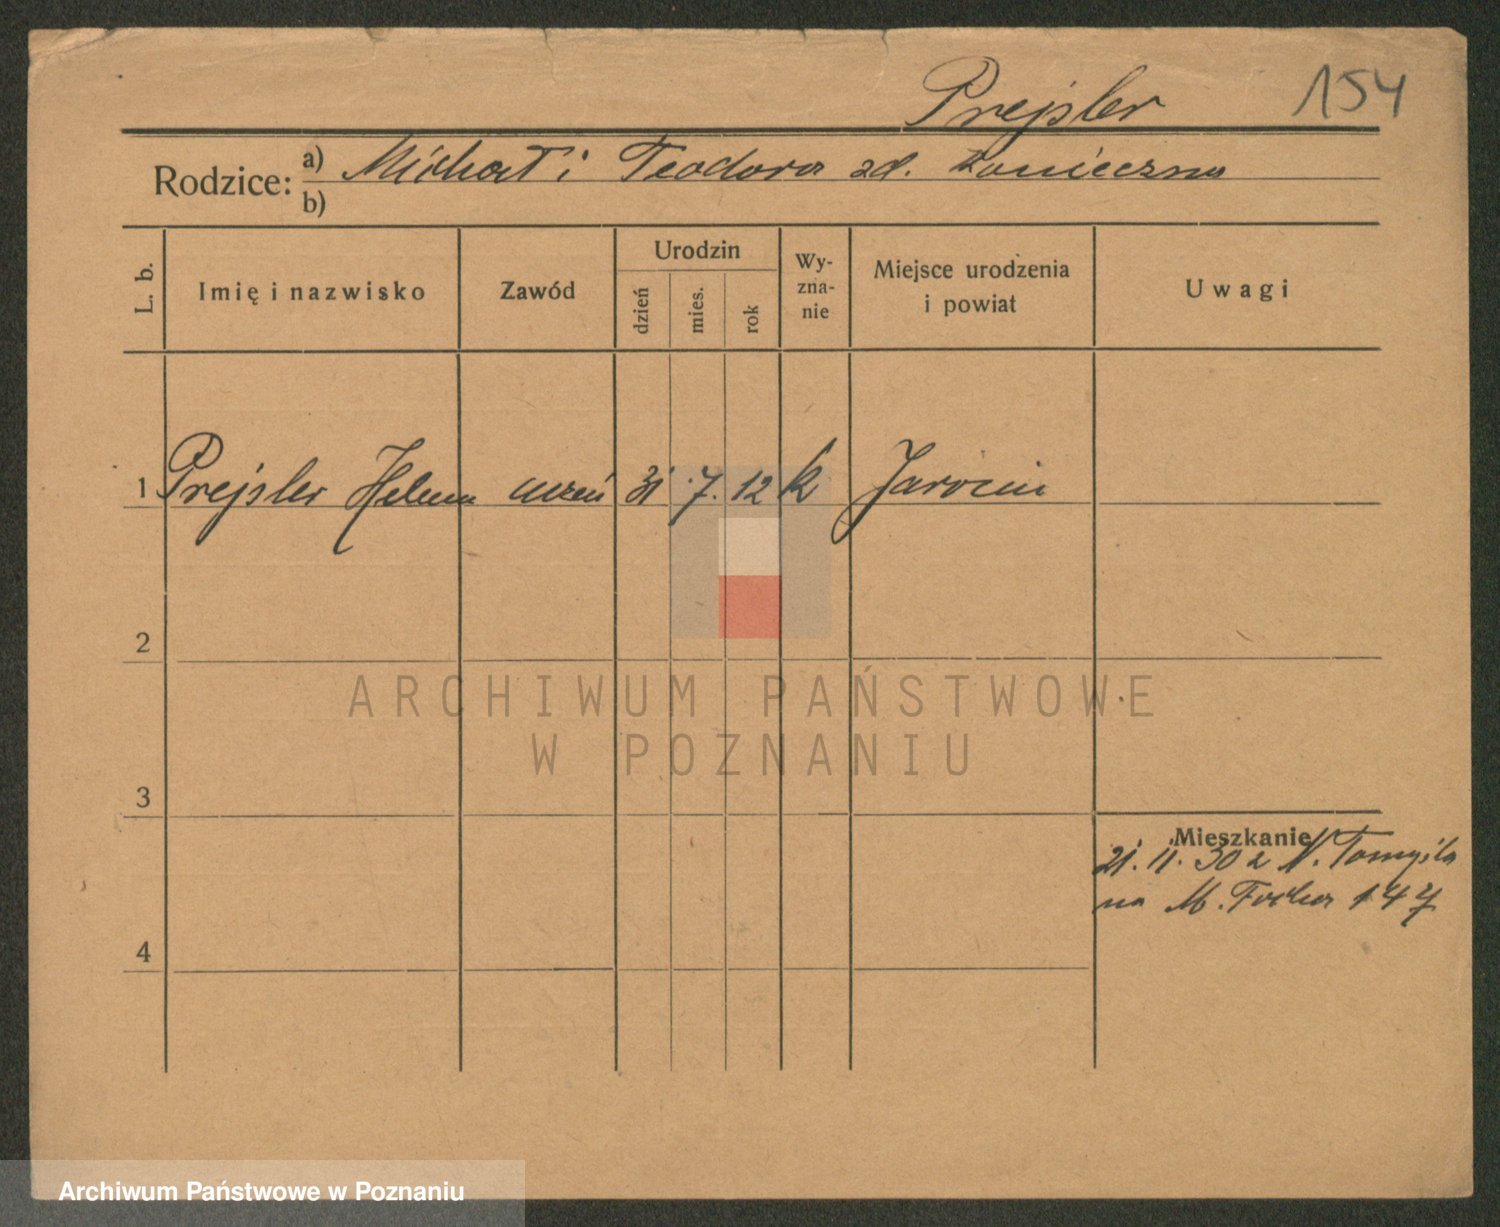 Prejsler 154
Rodzice: a) Michał i Teodora zd. Konieczna
b)
L. b. Imię i nazwisko Zawód Urodzin dzień mies. rok Wyznanie Miejsce urodzenia i powiat Uwagi
1 Prejsler Helena uczeń 31 7. 12 k Jarocin
2
ARCHIWUM PAŃSTWOWE
W POZNANIU
3
Mieszkanie
21. 11. 30 z N. Tomyśla
na M. Focha 147
4
Archiwum Państwowe w Poznaniu